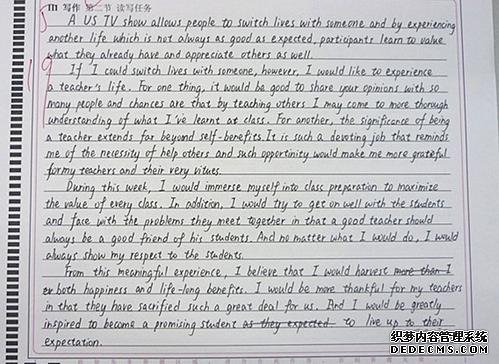 III 写作 第二节 读写任务
5
A US TV show allows people to switch lives with someone and by experiencing
another life which is not always as good as expected, participants learn to value
what they already have and appreciate others as well.
19
If I could switch lives with someone, however, I would like to experience
a teacher's life. For one thing, it would be good to share your opinions with so
many people and chances are that by teaching others I may come to more thorough
understanding of what I've learnt at class. For another, the significance of being
a teacher extends far beyond self-benefits. It is such a devoting job that reminds
me of the necessity of help others and such opportinity would make me more grateful
for my teachers and their very vitues.
During this week, I would immerse myself into class preparation to maximize
the value of every class. In addition, I would try to get on well with the students
and face with the problems they meet together in that a good teacher should
always be a good friend of his students. And no matter what I would do, I would
always show my respect to the students.
From this meaningful experience, I believe that I would harvest more than I
both happiness and life-long benefits. I would be more thankful for my teachers
in that they have sacrified such a great deal for us. And I would be greatly
inspired to become a promising student as they expected to live up to their
expectation.
织梦内容管理系统
DEDECMS.COM